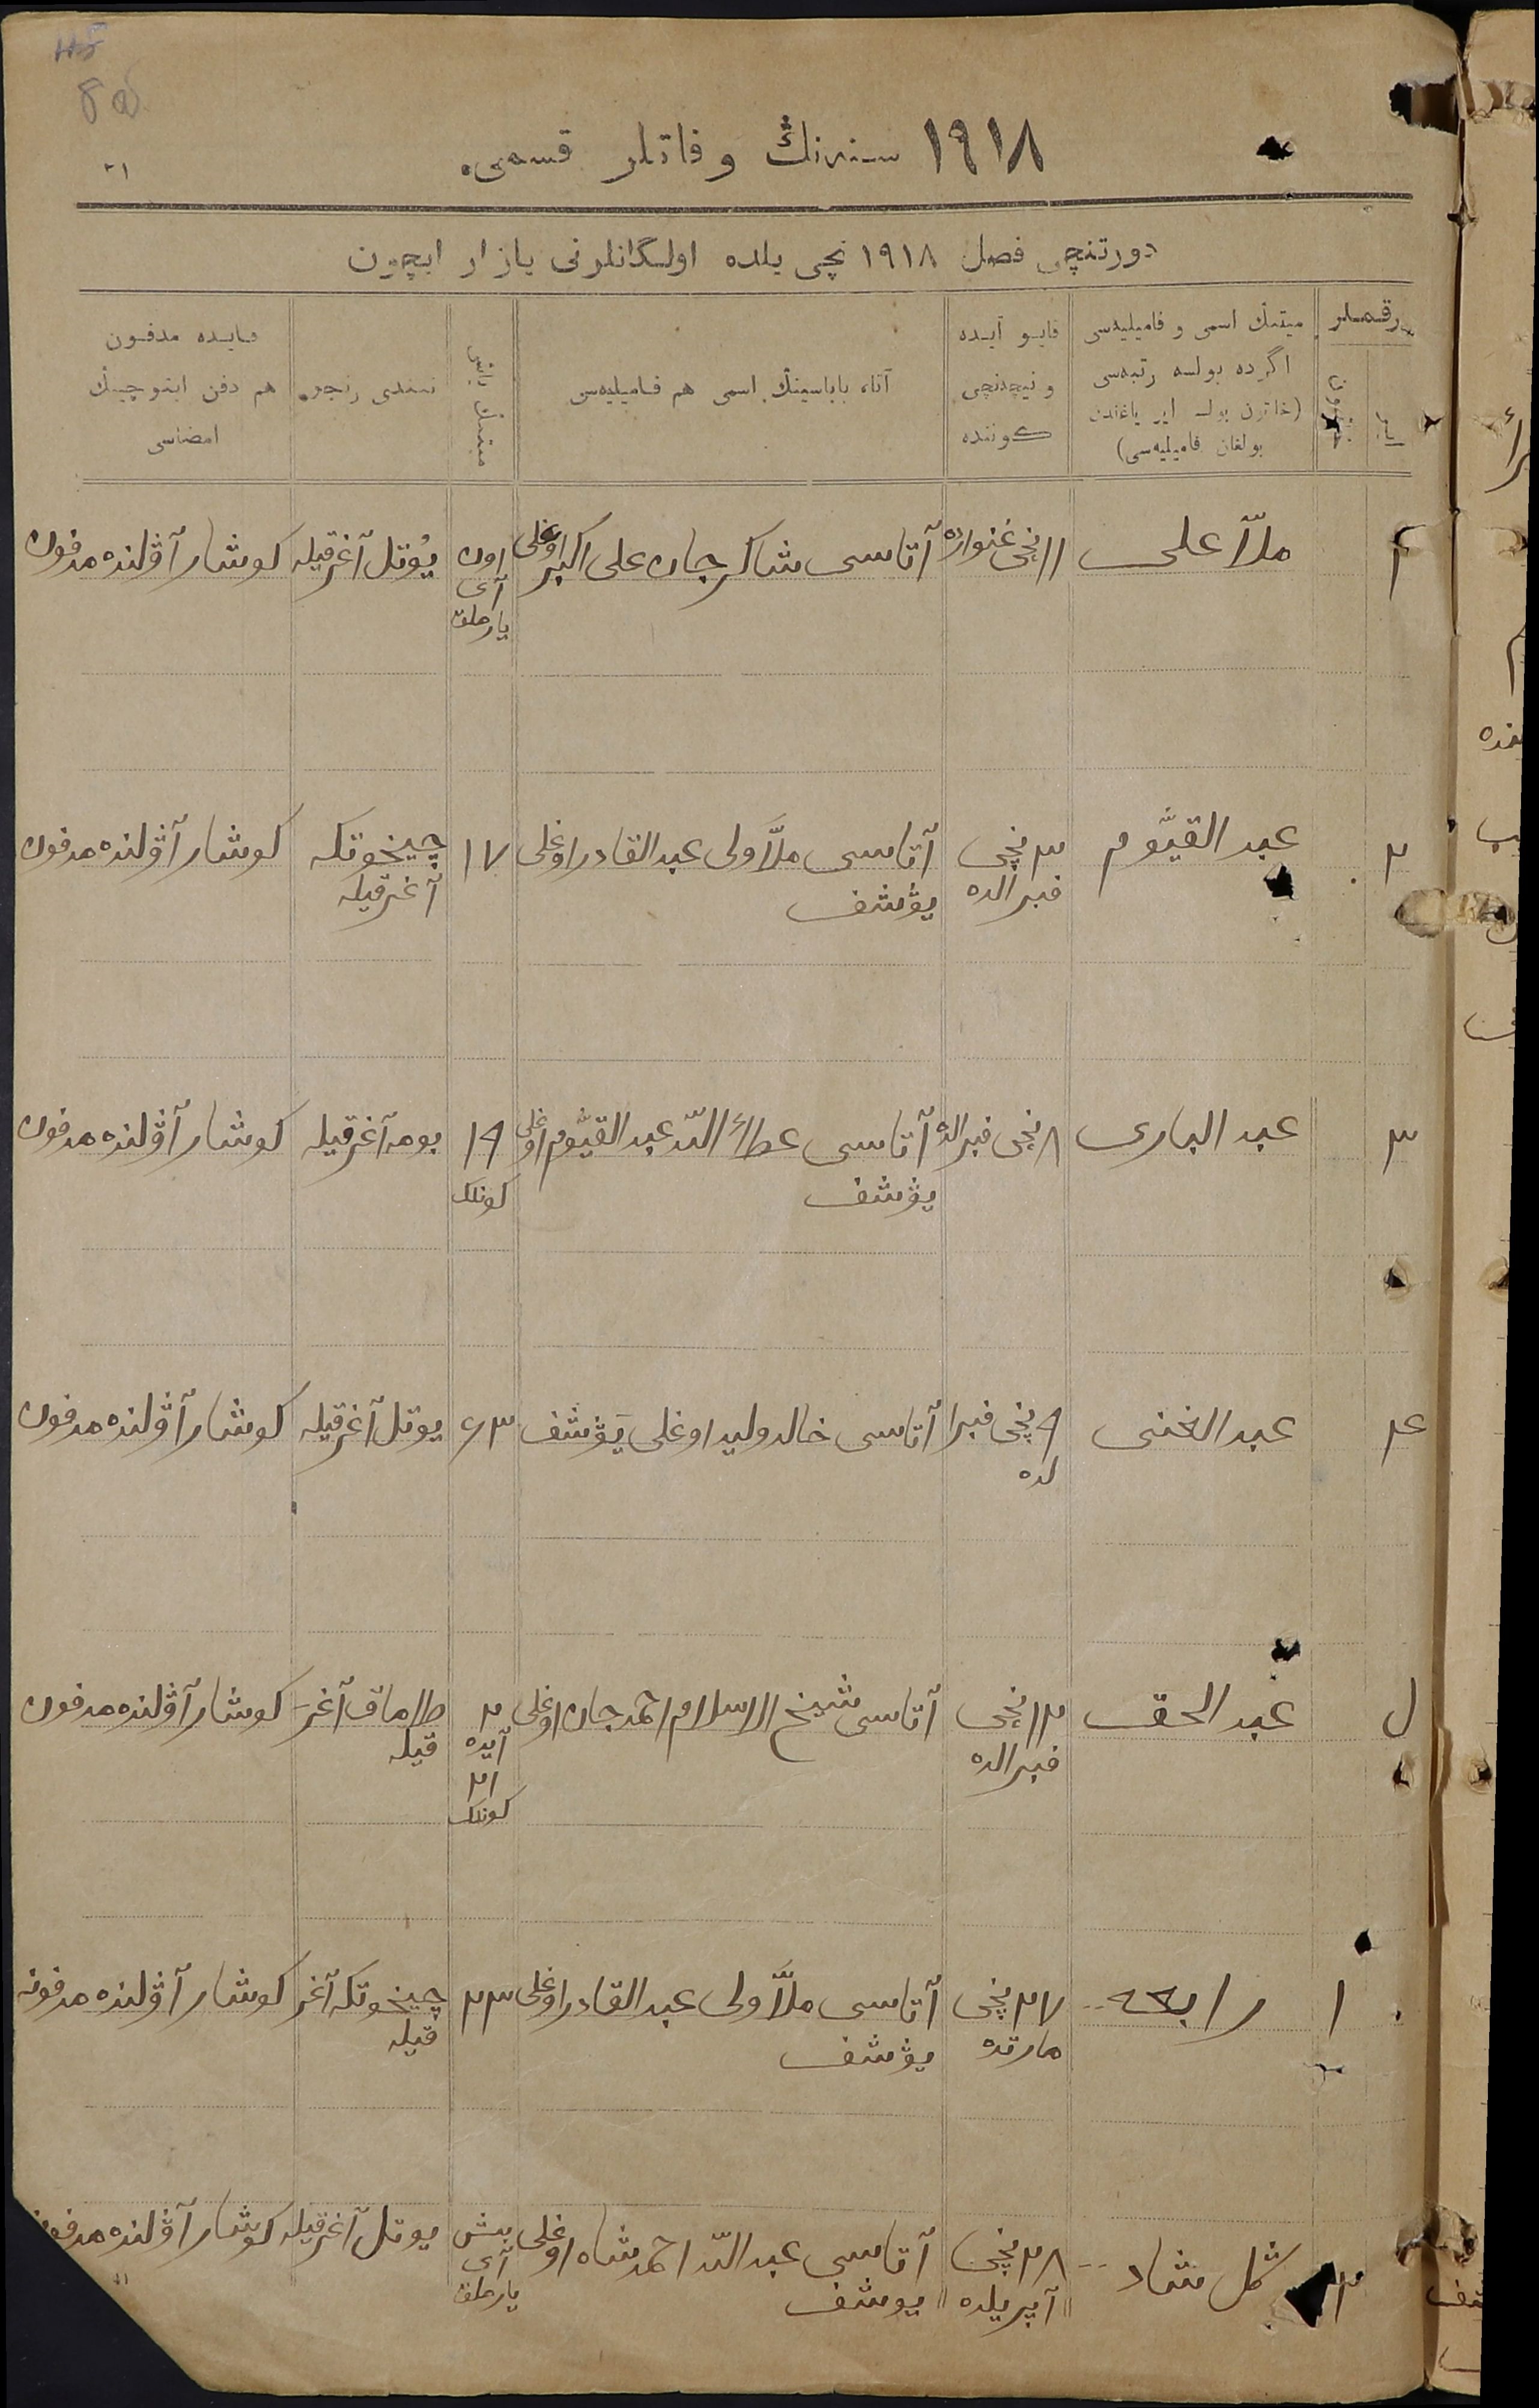 ١٩١٨ سنه‌نڭ وفاتلر قسمى.
دورتنچى فصل ١٩١٨ نچى يلده اولگانلرنى يازار ايچون
رقملر
ميتنڭ اسمى و فاميليه‌سى
اگرده بولسه رتبه‌سى
(خاتون بولسه اير ياغندن
بولغان فاميليه‌سى)
قايو آيده
و نيچه‌نچى
كوننده
آتا، باباسينڭ اسمى هم فاميليه‌سى
ميتنڭ ياشى
نيندى رنجدن
قايده مدفون
هم دفن ايتوچينڭ
امضاسى
ملّا على ١١ نچى غنوارده آتاسى شاكرجان على اكبر اوغلى اون آى يارملق يۇتل آغرقيله كوشار آۋلنده مدفون
٢ عبد القيّوم ٣ نچى فبرالده آتاسى ملّا ولى عبد القادر اوغلى يۋشف ١٧ چيخوتكه آغرقيله كوشار آۋلنده مدفون
٣ عبد البارى ٨ نچى فبرالده آتاسى عطاء الله عبد القيّوم اوغلى يۋشف ١٩ كونلك بومه آغرقيله كوشار آۋلنده مدفون
٤ عبد الغنى ٩ نچى فبرالده آتاسى خالد وليد اوغلى يۋشف ٦٣ يوتل آغرقيله كوشار آۋلنده مدفون
عبد الحق ١٢ نچى فبرالده آتاسى شيخ الاسلام احمدجان اوغلى ٢ آيده ٢١ كونلك طاماق آغرقيله كوشار آۋلنده مدفون
١ رابعه ٢٧ نچى مارتده آتاسى ملّا ولى عبد القادر اوغلى يۋشف ٢٣ چيخوتكه آغرقيله كوشار آۋلنده مدفونه
٢ گل شاد ٢٨ نچى آپريلده آتاسى عبد الله احمدشاه اوغلى يوشف بيش آى يارملق يوتل آغرقيله كوشار آۋلنده مدفونه